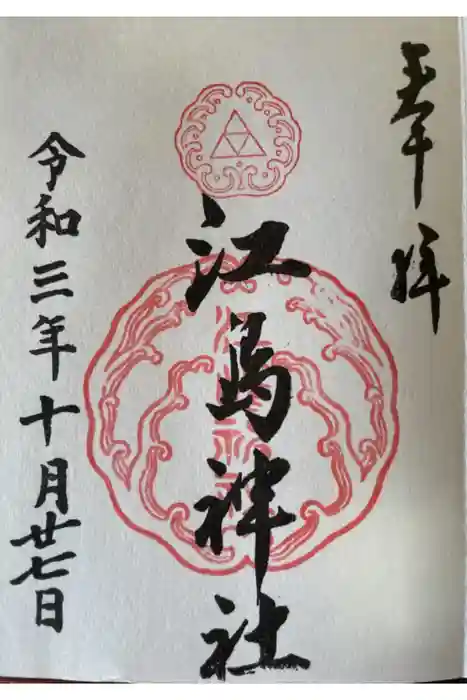 奉拝
江島神社
令和三年十月廿七日